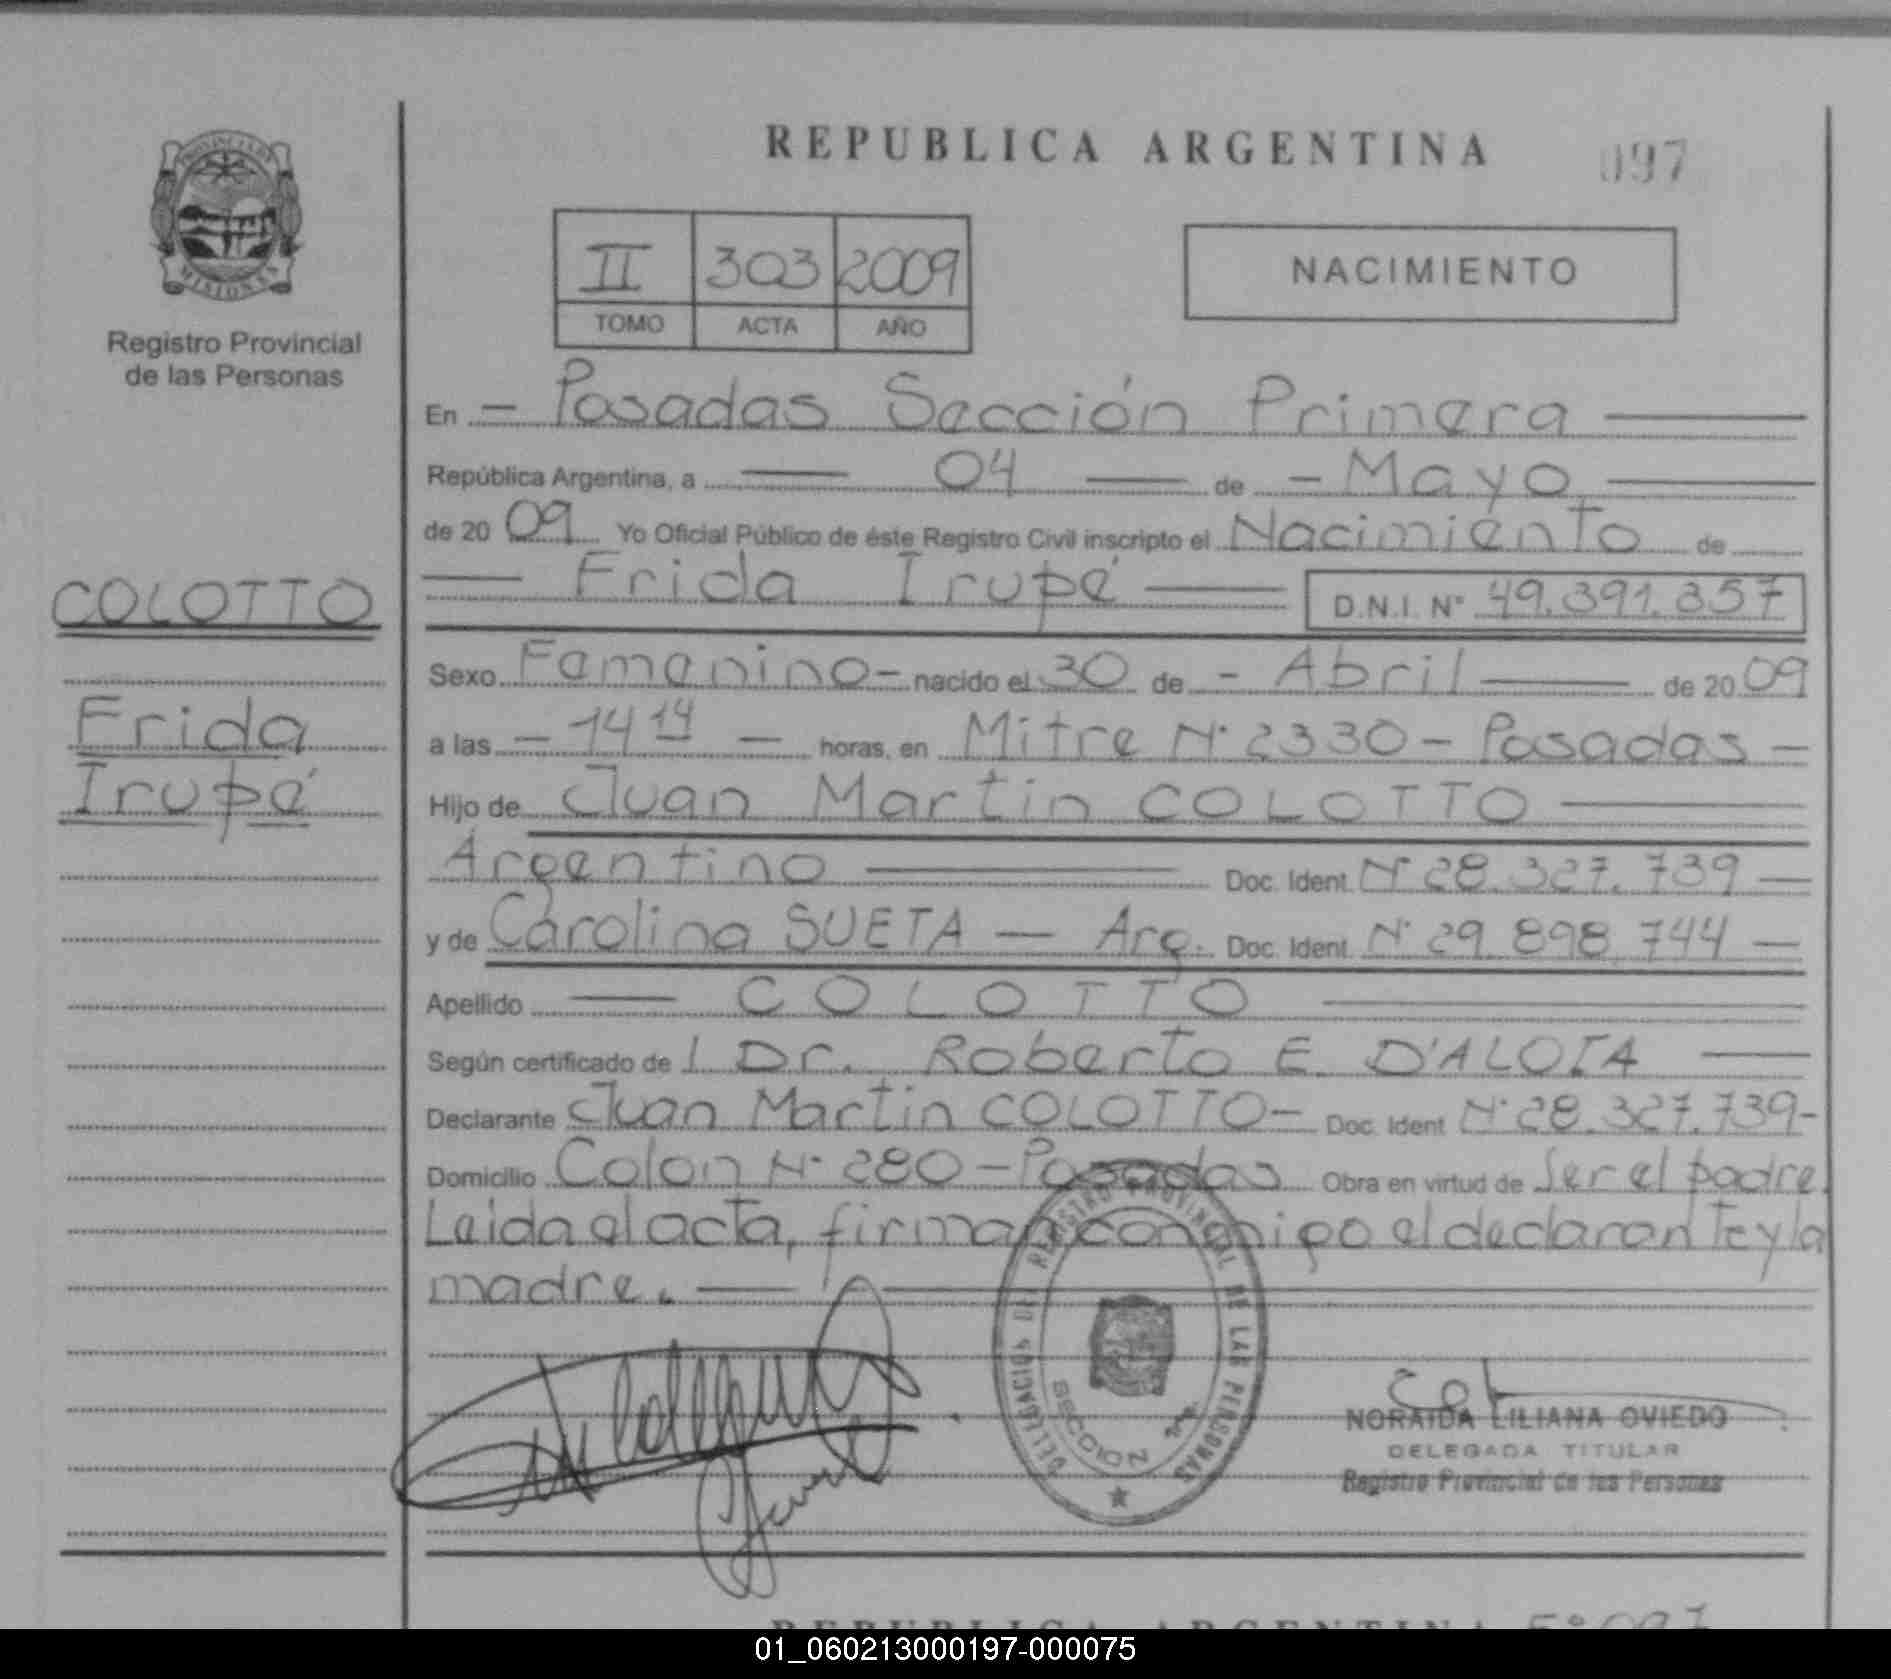 REPUBLICA ARGENTINA
097
PROVINCIA DE
MISIONES
Registro Provincial
de las Personas
II 303 2009
TOMO ACTA AÑO
NACIMIENTO
En - Posadas Sección Primera
República Argentina, a 04 de - Mayo
de 20 09 Yo Oficial Público de éste Registro Civil inscripto el Nacimiento de
Frida Irupé D.N.I. N° 49.391.857
COLOTTO
Frida
Irupé
Sexo Femenino - nacido el 30 de - Abril de 20 09
a las - 14 14 - horas, en Mitre N° 2330 - Posadas -
Hijo de Juan Martin COLOTTO
Argentino Doc. Ident. N° 28.327.739 -
y de Carolina SUETA - Arg. Doc. Ident. N° 29.898.744 -
Apellido COLOTTO
Según certificado de l Dr. Roberto E. D'ALOIA
Declarante Juan Martin COLOTTO - Doc. Ident N° 28.327.739 -
Domicilio Colon N° 280 - Posadas Obra en virtud de Ser el padre.
Leida el acta, firman conmigo el declarante y la
madre.
DELEGACION DEL REGISTRO PROVINCIAL DE LAS PERSONAS
SECCION 1ra
NORAIDA LILIANA OVIEDO
DELEGADA TITULAR
Registro Provincial de las Personas
REPUBLICA ARGENTINA Fº 097
01_060213000197-000075